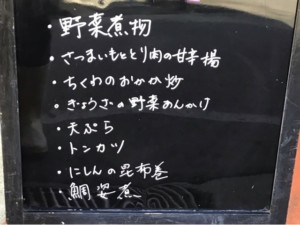 ・野菜煮物
・さつまいもととり肉の甘辛揚
・ちくわのおかか炒
・ぎょうざの野菜あんかけ
・天ぷら
・トンカツ
・にしんの昆布巻
鯛姿煮